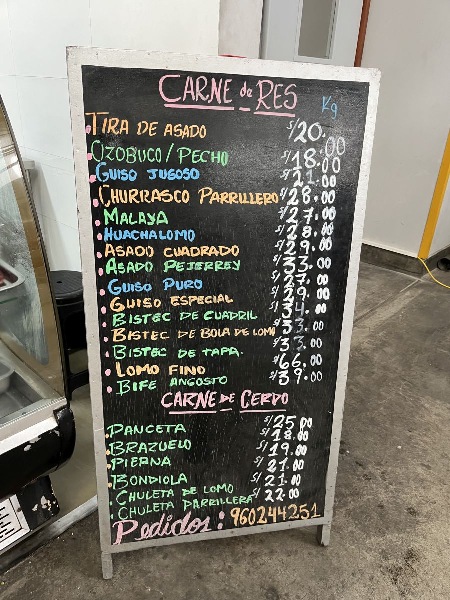 CARNE de RES
Kg
TIRA DE ASADO S/20.00
OZOBUCO/PECHO S/18.00
GUISO JUGOSO S/21.00
CHURRASCO PARRILLERO S/28.00
MALAYA S/27.00
HUACHALOMO S/28.00
ASADO CUADRADO S/29.00
ASADO PEJERREY S/33.00
GUISO PURO S/27.00
GUISO ESPECIAL S/29.00
BISTEC DE CUADRIL S/34.00
BISTEC DE BOLA DE LOMO S/33.00
BISTEC DE TAPA. S/33.00
LOMO FINO S/66.00
BIFE ANGOSTO S/39.00
CARNE DE CERDO
PANCETA S/25.00
BRAZUELO S/18.00
PIERNA S/19.00
BONDIOLA S/21.00
CHULETA DE LOMO S/21.00
CHULETA PARRILLERA S/22.00
Pedidos: 960244251